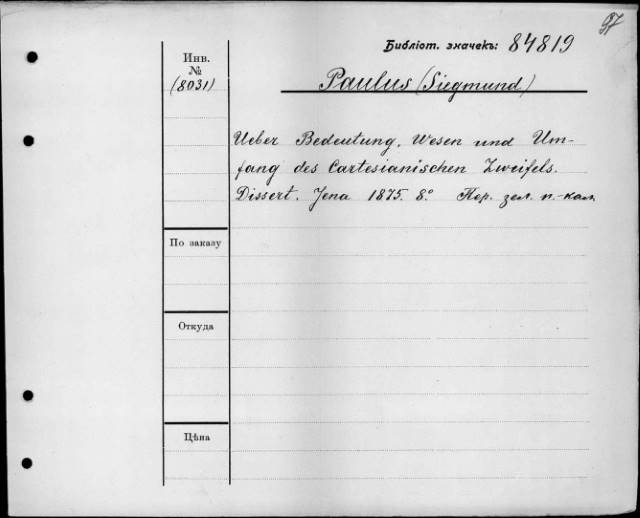 97
Библіот. значекъ: 84819
Инв.
№
(8031)
Paulus (Siegmund)
Ueber Bedeutung, Wesen und Um-
fang des Cartesianischen Zweifels.
Dissert. Jena 1875. 8º Кор. зел. п.-кал.
По заказу
Откуда
Цѣна